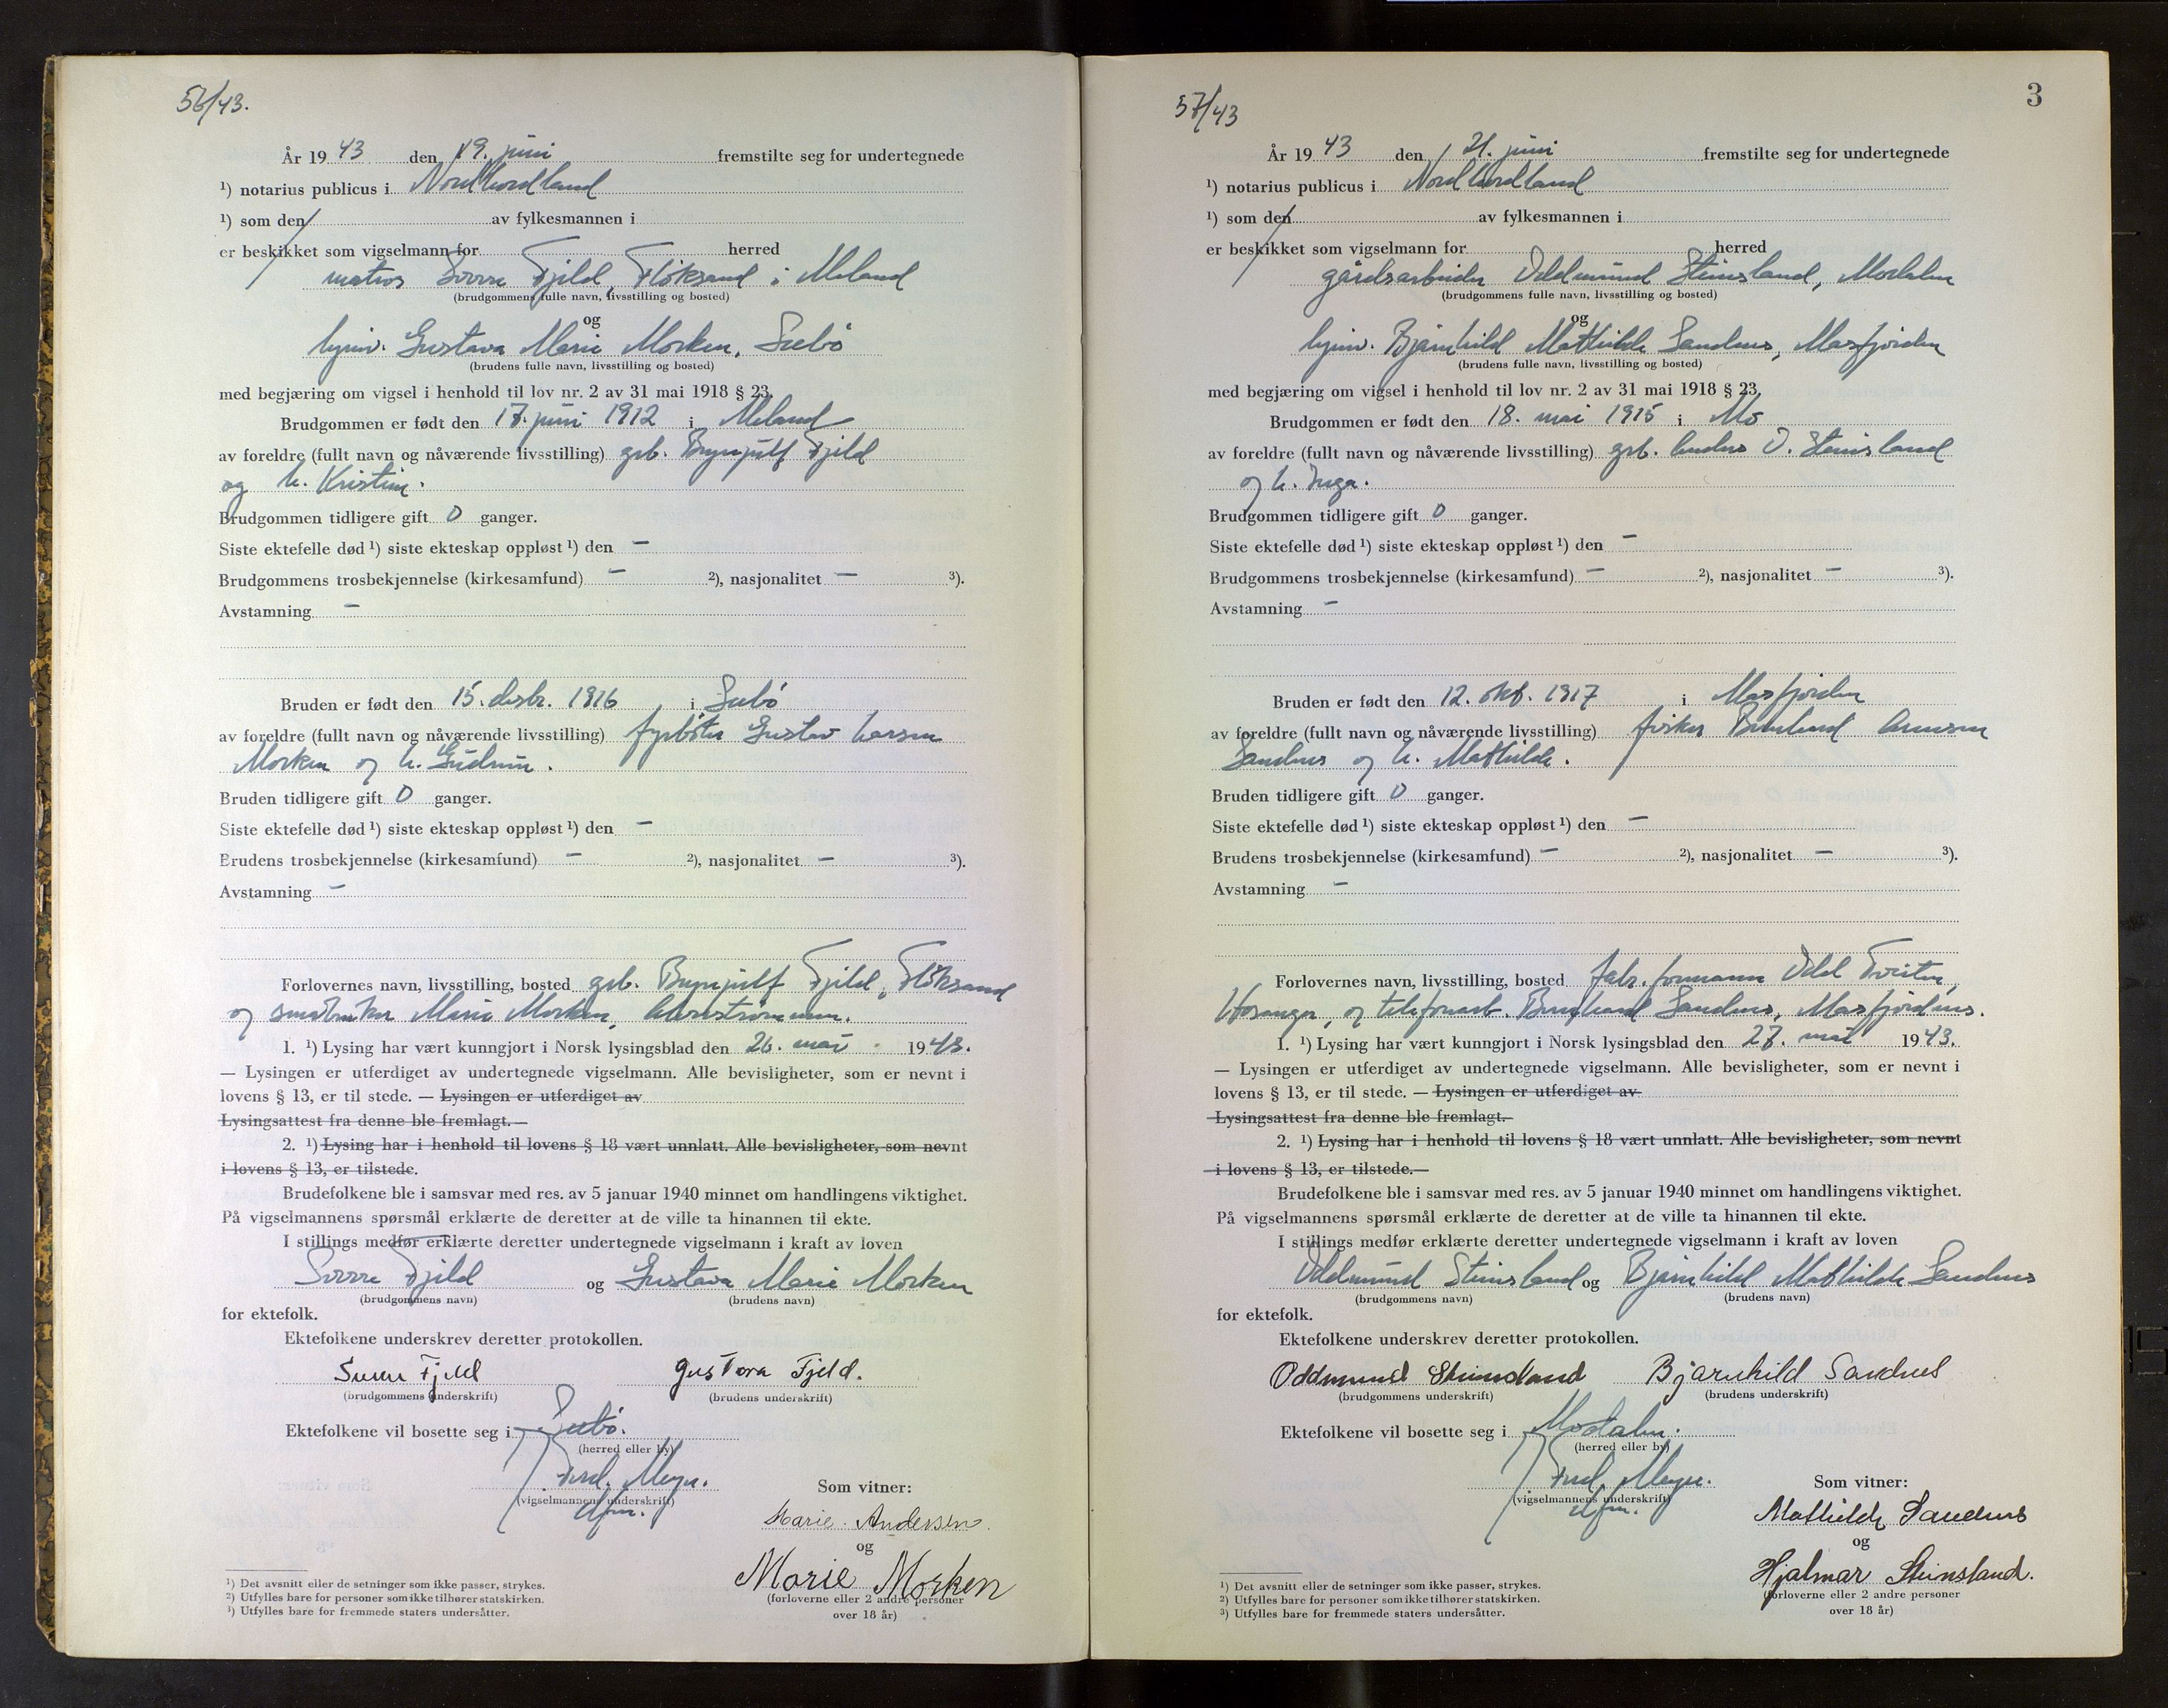 56/43.
År 19 43 den 19. juni fremstilte seg for undertegnede
¹) notarius publicus i Nordhordland
¹) som den av fylkesmannen i
er beskikket som vigselmann for herred
matros Sverre Fjeld, Fløksand i Meland
(brudgommens fulle navn, livsstilling og bosted)
og
hjmv. Gustava Marie Morken, Sæbø
(brudens fulle navn, livsstilling og bosted)
med begjæring om vigsel i henhold til lov nr. 2 av 31 mai 1918 § 23.
Brudgommen er født den 17. juni 1912 i Meland
av foreldre (fullt navn og nåværende livsstilling) grb. Brynjulf Fjeld
og h. Kristine.
Brudgommen tidligere gift 0 ganger.
Siste ektefelle død ¹) siste ekteskap oppløst ¹) den —
Brudgommens trosbekjennelse (kirkesamfund) — ²), nasjonalitet — ³).
Avstamning —
Bruden er født den 15. desbr. 1916 i Sæbø
av foreldre (fullt navn og nåværende livsstilling) fyrbøter Gustav Larsen
Morken og h. Gudrun.
Bruden tidligere gift 0 ganger.
Siste ektefelle død ¹) siste ekteskap oppløst ¹) den —
Brudens trosbekjennelse (kirkesamfund) — ²), nasjonalitet — ³).
Avstamning —
Forlovernes navn, livsstilling, bosted grb. Brynjulf Fjeld, Fløksand
og småbruker Marie Morken,
1. ¹) Lysing har vært kunngjort i Norsk lysingsblad den 26. mai 1943.
— Lysingen er utferdiget av undertegnede vigselmann. Alle bevisligheter, som er nevnt i
lovens § 13, er til stede. — Lysingen er utferdiget av
Lysingsattest fra denne ble fremlagt. —
2. ¹) Lysing har i henhold til lovens § 18 vært unnlatt. Alle bevisligheter, som nevnt
i lovens § 13, er tilstede.
Brudefolkene ble i samsvar med res. av 5 januar 1940 minnet om handlingens viktighet.
På vigselmannens spørsmål erklærte de deretter at de ville ta hinannen til ekte.
I stillings medfør erklærte deretter undertegnede vigselmann i kraft av loven
Sverre Fjeld og Gustava Marie Morken
(brudgommens navn) (brudens navn)
for ektefolk.
Ektefolkene underskrev deretter protokollen.
Sverre Fjeld Gustava Fjeld.
(brudgommens underskrift) (brudens underskrift)
Ektefolkene vil bosette seg i Sæbø.
(herred eller by)
Fred. Meyer.
(vigselmannens underskrift)
dfm.
Som vitner:
Marie Andersen.
og
Marie Morken
(forloverne eller 2 andre personer
over 18 år)
¹) Det avsnitt eller de setninger som ikke passer, strykes.
²) Utfylles bare for personer som ikke tilhører statskirken.
³) Utfylles bare for fremmede staters undersåtter.
3
57/43
År 19 43 den 21. juni fremstilte seg for undertegnede
¹) notarius publicus i Nordhordland
¹) som den av fylkesmannen i
er beskikket som vigselmann for herred
gårdsarbeider Oddmund Steinsland, Modalen
(brudgommens fulle navn, livsstilling og bosted)
og
hjmv. Bjarnhild Mathilde Sandnes, Masfjorden
(brudens fulle navn, livsstilling og bosted)
med begjæring om vigsel i henhold til lov nr. 2 av 31 mai 1918 § 23.
Brudgommen er født den 18. mai 1915 i Mo
av foreldre (fullt navn og nåværende livsstilling) grb. Anders O. Steinsland
og h. Inga.
Brudgommen tidligere gift 0 ganger.
Siste ektefelle død ¹) siste ekteskap oppløst ¹) den —
Brudgommens trosbekjennelse (kirkesamfund) — ²), nasjonalitet — ³).
Avstamning —
Bruden er født den 12. okt. 1917 i Masfjorden
av foreldre (fullt navn og nåværende livsstilling) fisker Arnesen
Sandnes og h. Mathilde.
Bruden tidligere gift 0 ganger.
Siste ektefelle død ¹) siste ekteskap oppløst ¹) den —
Brudens trosbekjennelse (kirkesamfund) — ²), nasjonalitet — ³).
Avstamning —
Forlovernes navn, livsstilling, bosted fabr. formann Odd
Hosanger, og telefonarb. Sandnes, Masfjordnes.
1. ¹) Lysing har vært kunngjort i Norsk lysingsblad den 27. mai 1943.
— Lysingen er utferdiget av undertegnede vigselmann. Alle bevisligheter, som er nevnt i
lovens § 13, er til stede. — Lysingen er utferdiget av
Lysingsattest fra denne ble fremlagt. —
2. ¹) Lysing har i henhold til lovens § 18 vært unnlatt. Alle bevisligheter, som nevnt
i lovens § 13, er tilstede. —
Brudefolkene ble i samsvar med res. av 5 januar 1940 minnet om handlingens viktighet.
På vigselmannens spørsmål erklærte de deretter at de ville ta hinannen til ekte.
I stillings medfør erklærte deretter undertegnede vigselmann i kraft av loven
Oddmund Steinsland og Bjarnhild Mathilde Sandnes
(brudgommens navn) (brudens navn)
for ektefolk.
Ektefolkene underskrev deretter protokollen.
Oddmund Steinsland Bjarnhild Sandnes
(brudgommens underskrift) (brudens underskrift)
Ektefolkene vil bosette seg i Modalen.
(herred eller by)
Fred. Meyer.
(vigselmannens underskrift)
dfm.
Som vitner:
Mathilde Sandnes
og
Hjalmar Steinsland.
(forloverne eller 2 andre personer
over 18 år)
¹) Det avsnitt eller de setninger som ikke passer, strykes.
²) Utfylles bare for personer som ikke tilhører statskirken.
³) Utfylles bare for fremmede staters undersåtter.